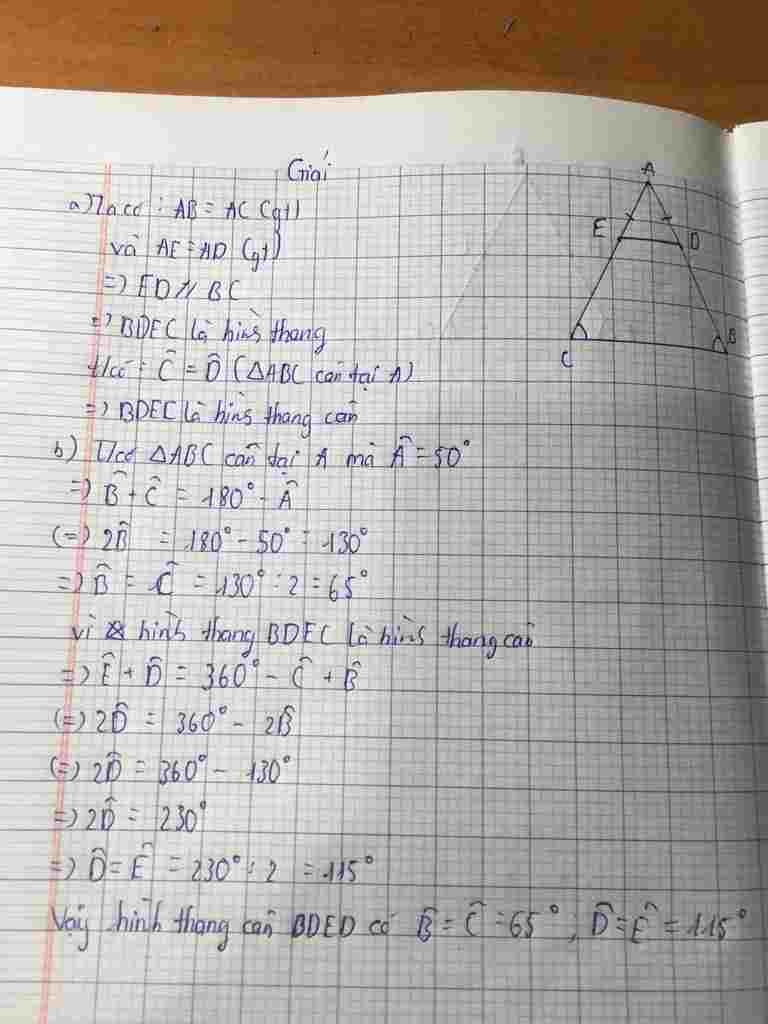 Giải
a) Ta có : AB = AC (gt)
và AE = AD (gt)
=> ED // BC
=> BDEC là hình thang
Tacó : Ĉ = D̂ (∆ABC cân tại A)
=> BDEC là hình thang cân
b) Tacó ∆ABC cân tại A mà Â = 50°
=> B̂ + Ĉ = 180° - Â
(=) 2B̂ = 180° - 50° = 130°
=> B̂ = Ĉ = 130° : 2 = 65°
vì hình thang BDEC là hình thang cân
=> Ê + D̂ = 360° - Ĉ + B̂
(=) 2D̂ = 360° - 2B̂
(=) 2D̂ = 360° - 130°
=> 2D̂ = 230°
=> D̂ = Ê = 230° : 2 = 115°
Vậy hình thang cân BDED có B̂ = Ĉ = 65° ; D̂ = Ê = 115°
A
E D
C B